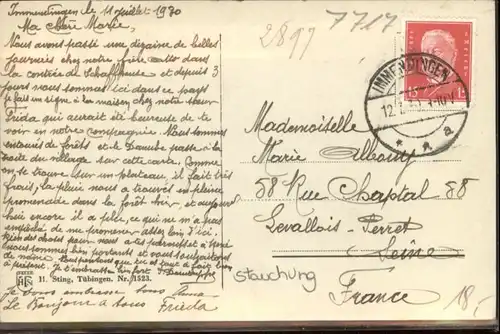 Immendingen le 11 juillet 1930
Ma chère Marie,
Nous avons passé une dizaine de belles
journées chez notre frère cadet dans
la contrée de Schaffhouse et depuis 3
jours nous sommes ici dans ce pays
je fais un signe à la maison chez notre sœur
Frida qui aurait été heureuse de te
voir en notre compagnie. Nous sommes
entourés de forêts et le Danube passe à la
du village sur cette carte. Comme
on se trouve sur un plateau, il fait très
frais, la pluie nous a trouvés en pleine
promenade dans la forêt hier et aujourd'
hui encore il a plu, ce qui ne m'a pas
empêché de me promener assez loin d'ici.
bien des choses pour nous
nous sommes bien portants et vous souhaitons
de même.
à présent. Je t'embrasse bien fort
Je vous embrasse tous
Le Bonjour à tous Frieda
H. Sting, Tübingen. Nr. 1523.
2897
7717
IMMENDINGEN
12.7.30
a
15
Mademoiselle
Marie Albouy
58 Rue Chaptal 58
Levallois-Perret
Seine
France
stauchung
18,-